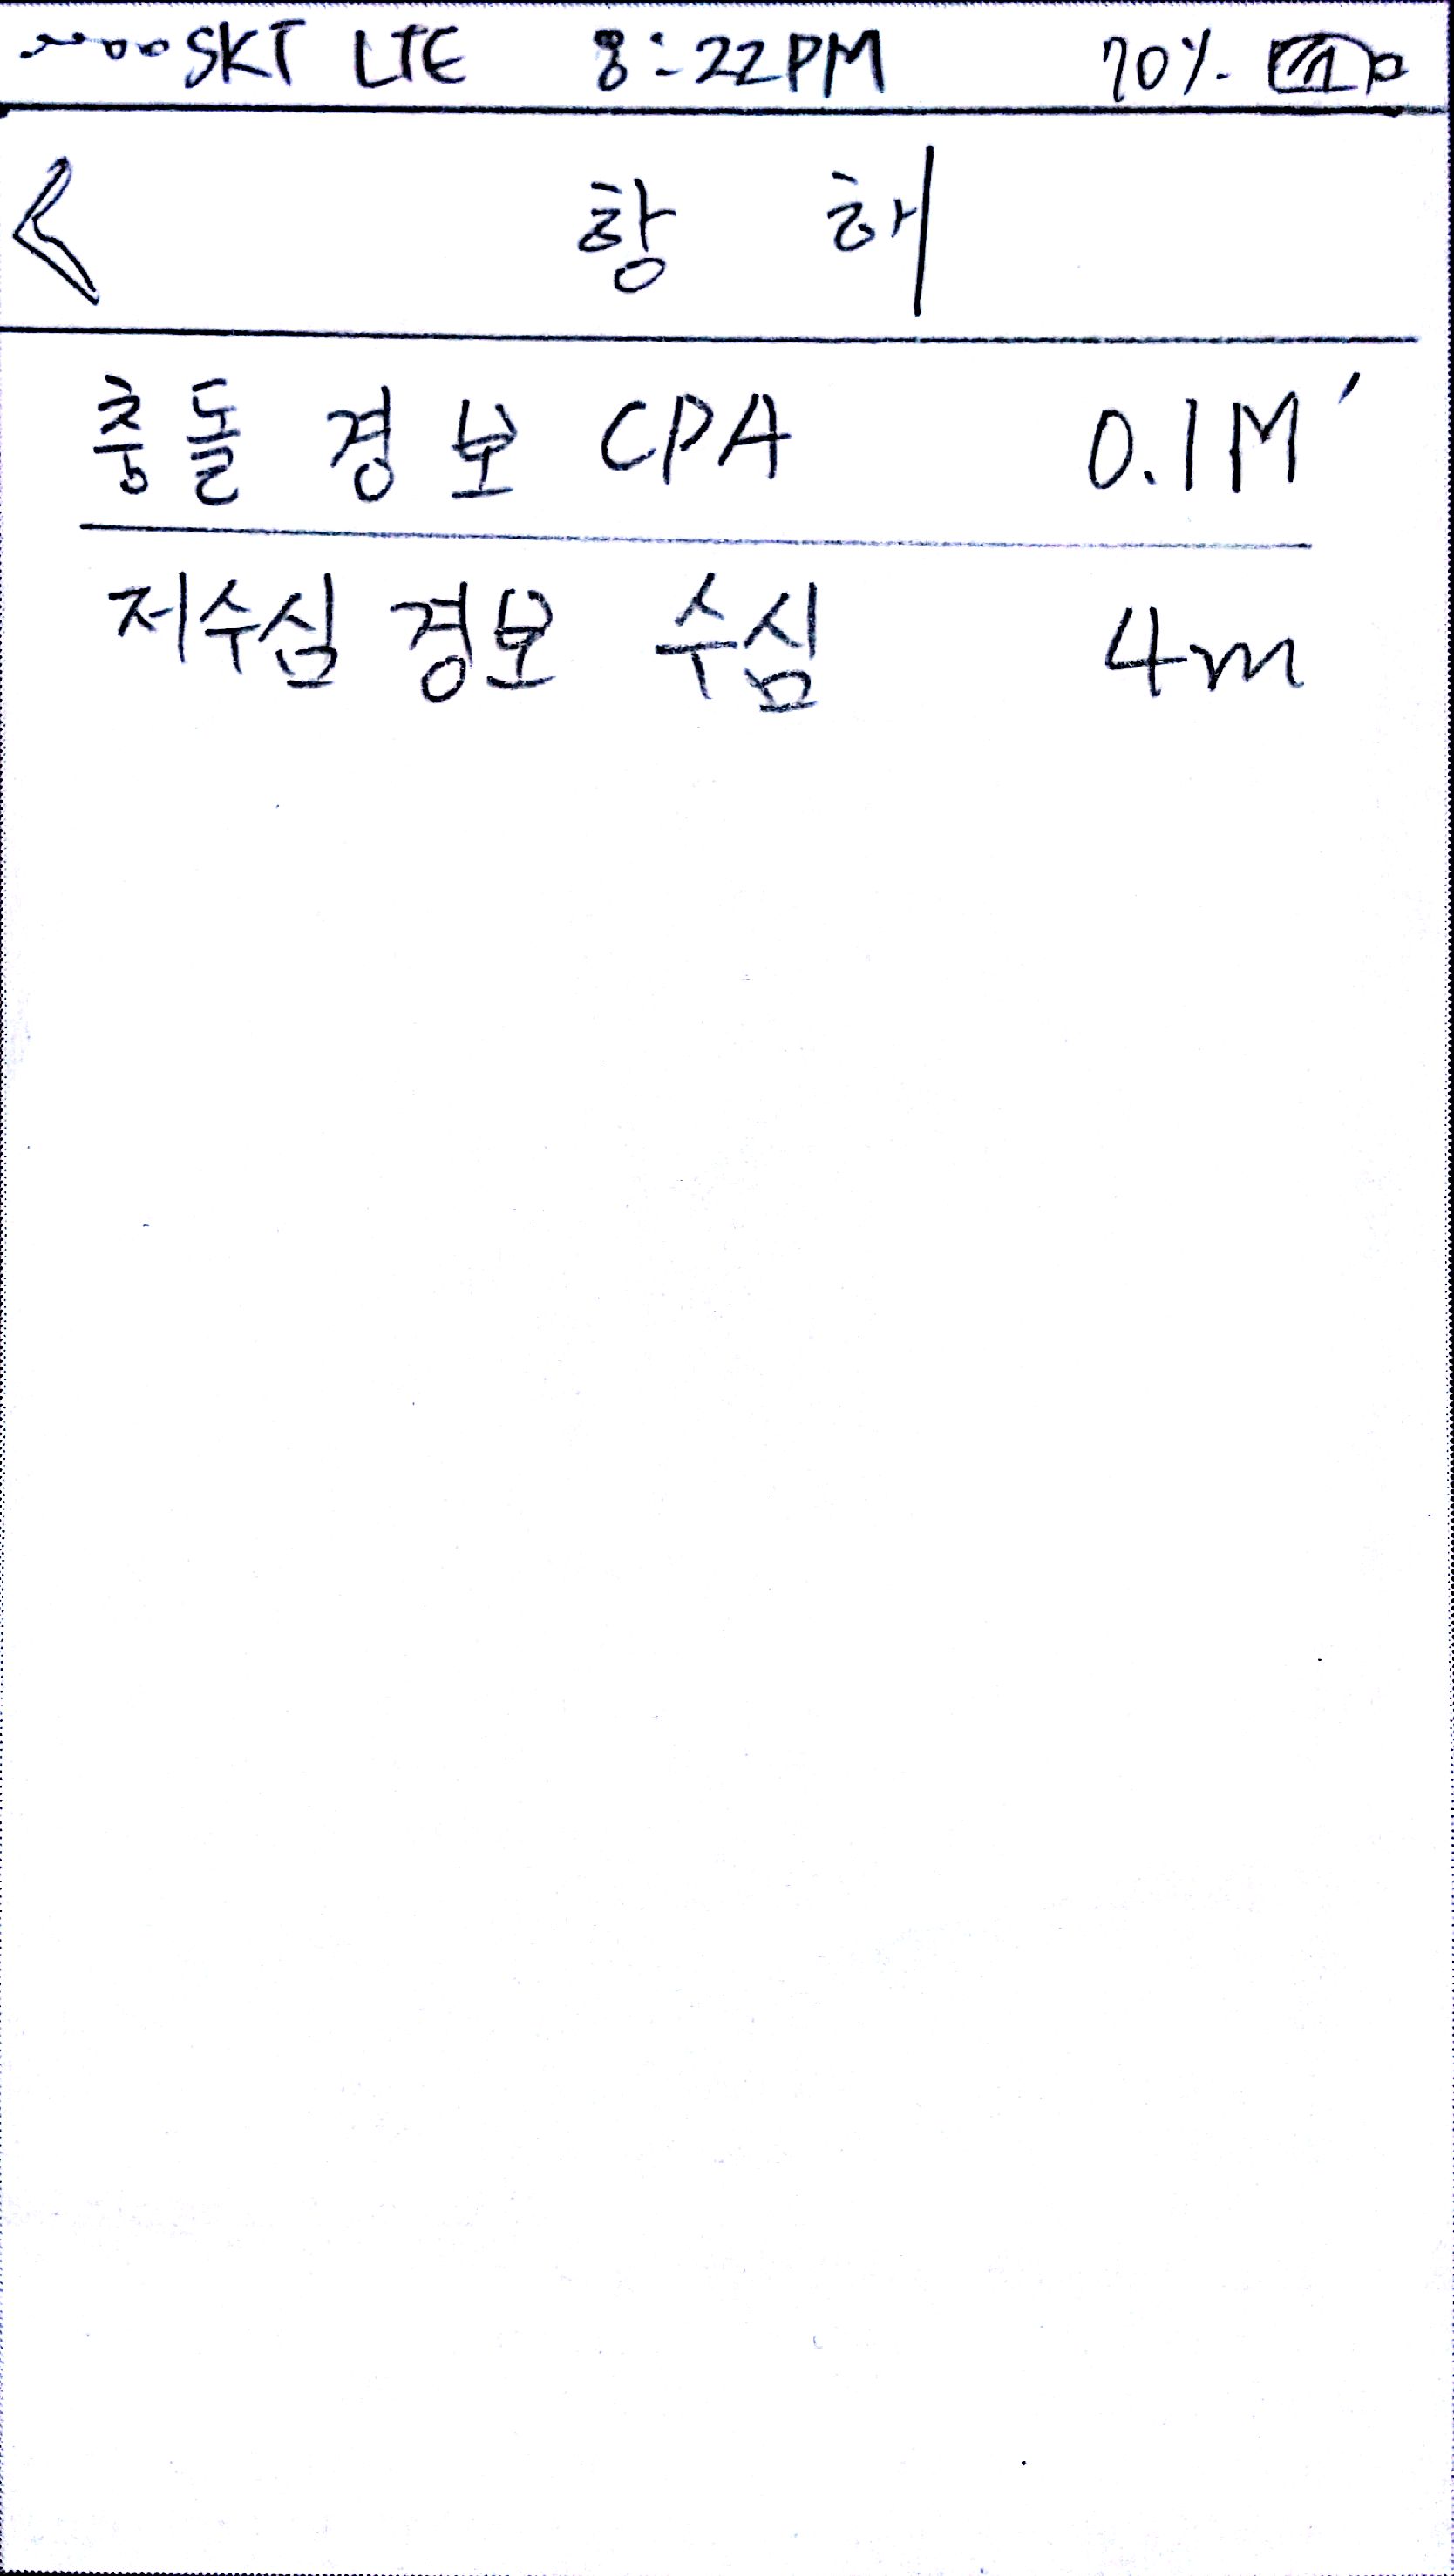 SKT LTE 8:22PM 70%
항 해
충돌 경보 CPA 0.1M'
저수심 경보 수심 4m